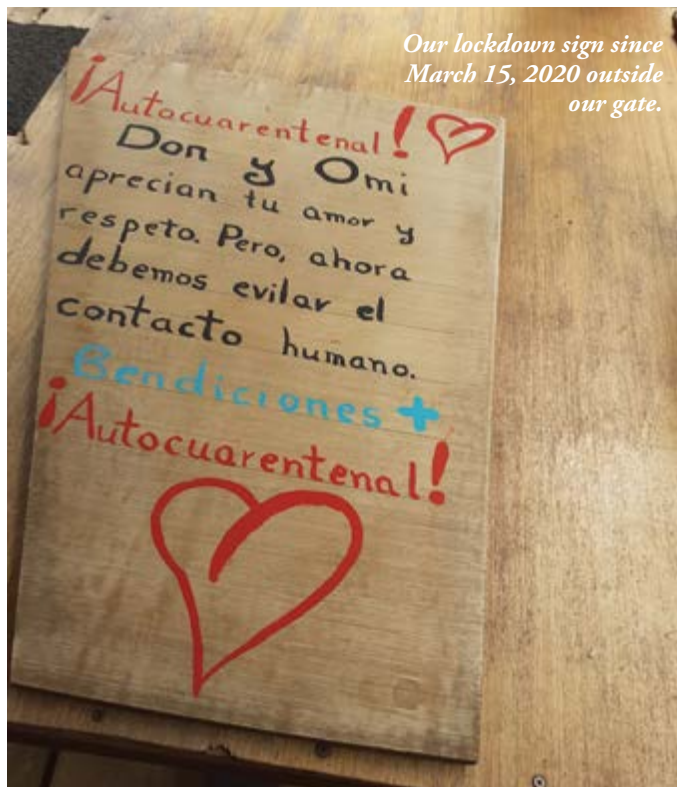 Our lockdown sign since
March 15, 2020 outside
our gate.
¡Autocuarentenal!
Don y Omi
aprecian tu amor y
respeto. Pero, ahora
debemos evilar el
contacto humano.
Bendiciones +
¡Autocuarentenal!